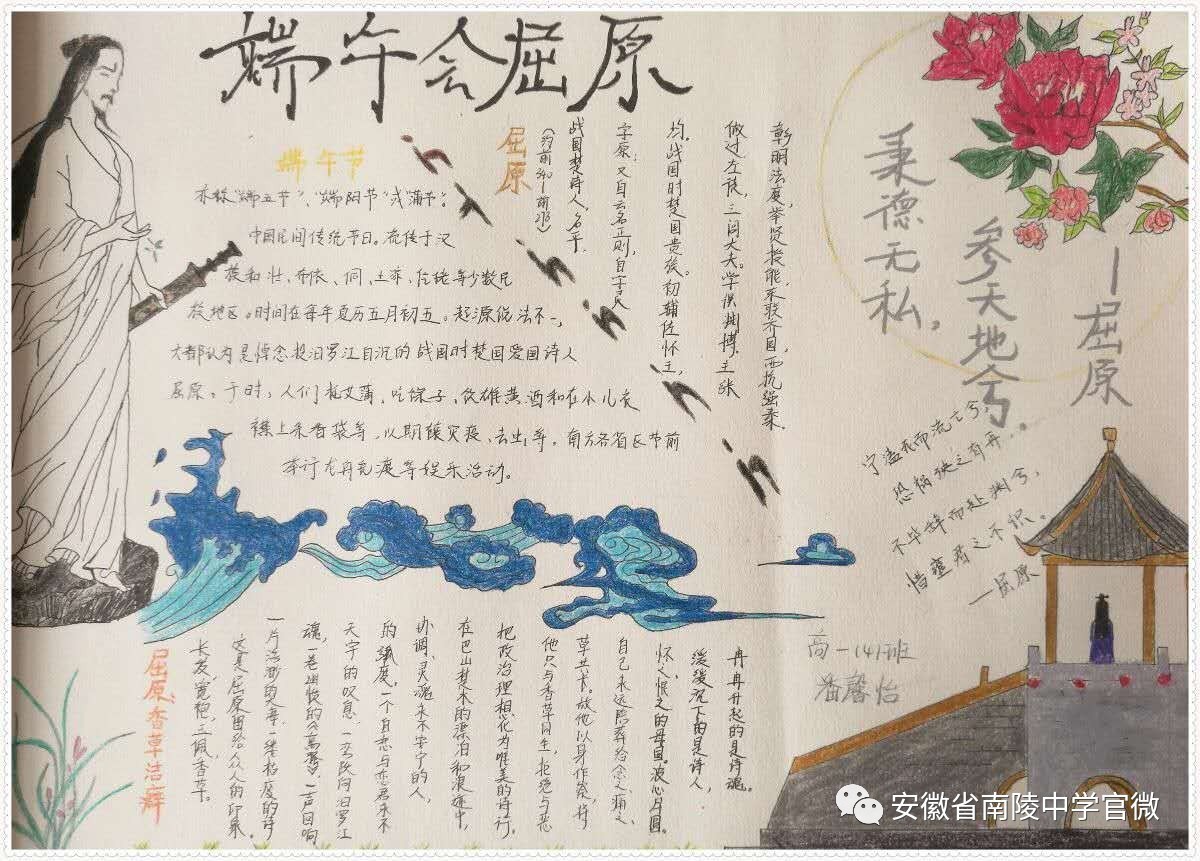 端午会屈原
端午节
亦称“端五节”、“端阳节”或“蒲节”。
中国民间传统节日。流传于汉
族和壮、布依、侗、土家、仡佬等少数民
族地区。时间在每年夏历五月初五。起源说法不一,
大都认为是悼念投汨罗江自沉的战国时楚国爱国诗人
屈原。于时,人们
吃粽子、饮雄黄酒和在小儿衣
襟上系香袋等,以期禳灾疫、去
等。南方各省区市前
举行龙舟竞渡等娱乐活动。
屈原
(约前340—前278)
战国楚诗人,名平,
字原;又自云名正则,自字灵
均。战国时楚国贵族。初辅佐怀王,
做过左徒,三闾大夫。学识渊博,主张
彰明法度,举贤授能,东联齐国,西抗强秦。
秉德无私,
参天地兮
—屈原
宁溘死而流亡兮,
恐祸殃之有再。
不毕辞而赴渊兮,
惜壅君之不识。
—屈原
高一(4)班
潘馨怡
冉冉升起的是诗魂。
缓缓沉下的是诗人,
怀之恨之的母国。波心月圆。
自己永远陪葬给会之痛之
草共长。故他以身作
他只与香草同生,拒绝与恶
把政治理想化为唯美的诗行。
在巴山楚水的漂泊和浪迹中,
协调,灵魂永不安宁的人,
的
度。一个自恋与恋君永不
天宇的叹息。一
改问汨罗江
魂,一卷幽恨的《离骚》一声回响
一片清澈的
一缕
的诗
这是屈原留给众人的印象。
长发,宽袍,玉佩,香草。
屈原:香草洁癖
安徽省南陵中学官微